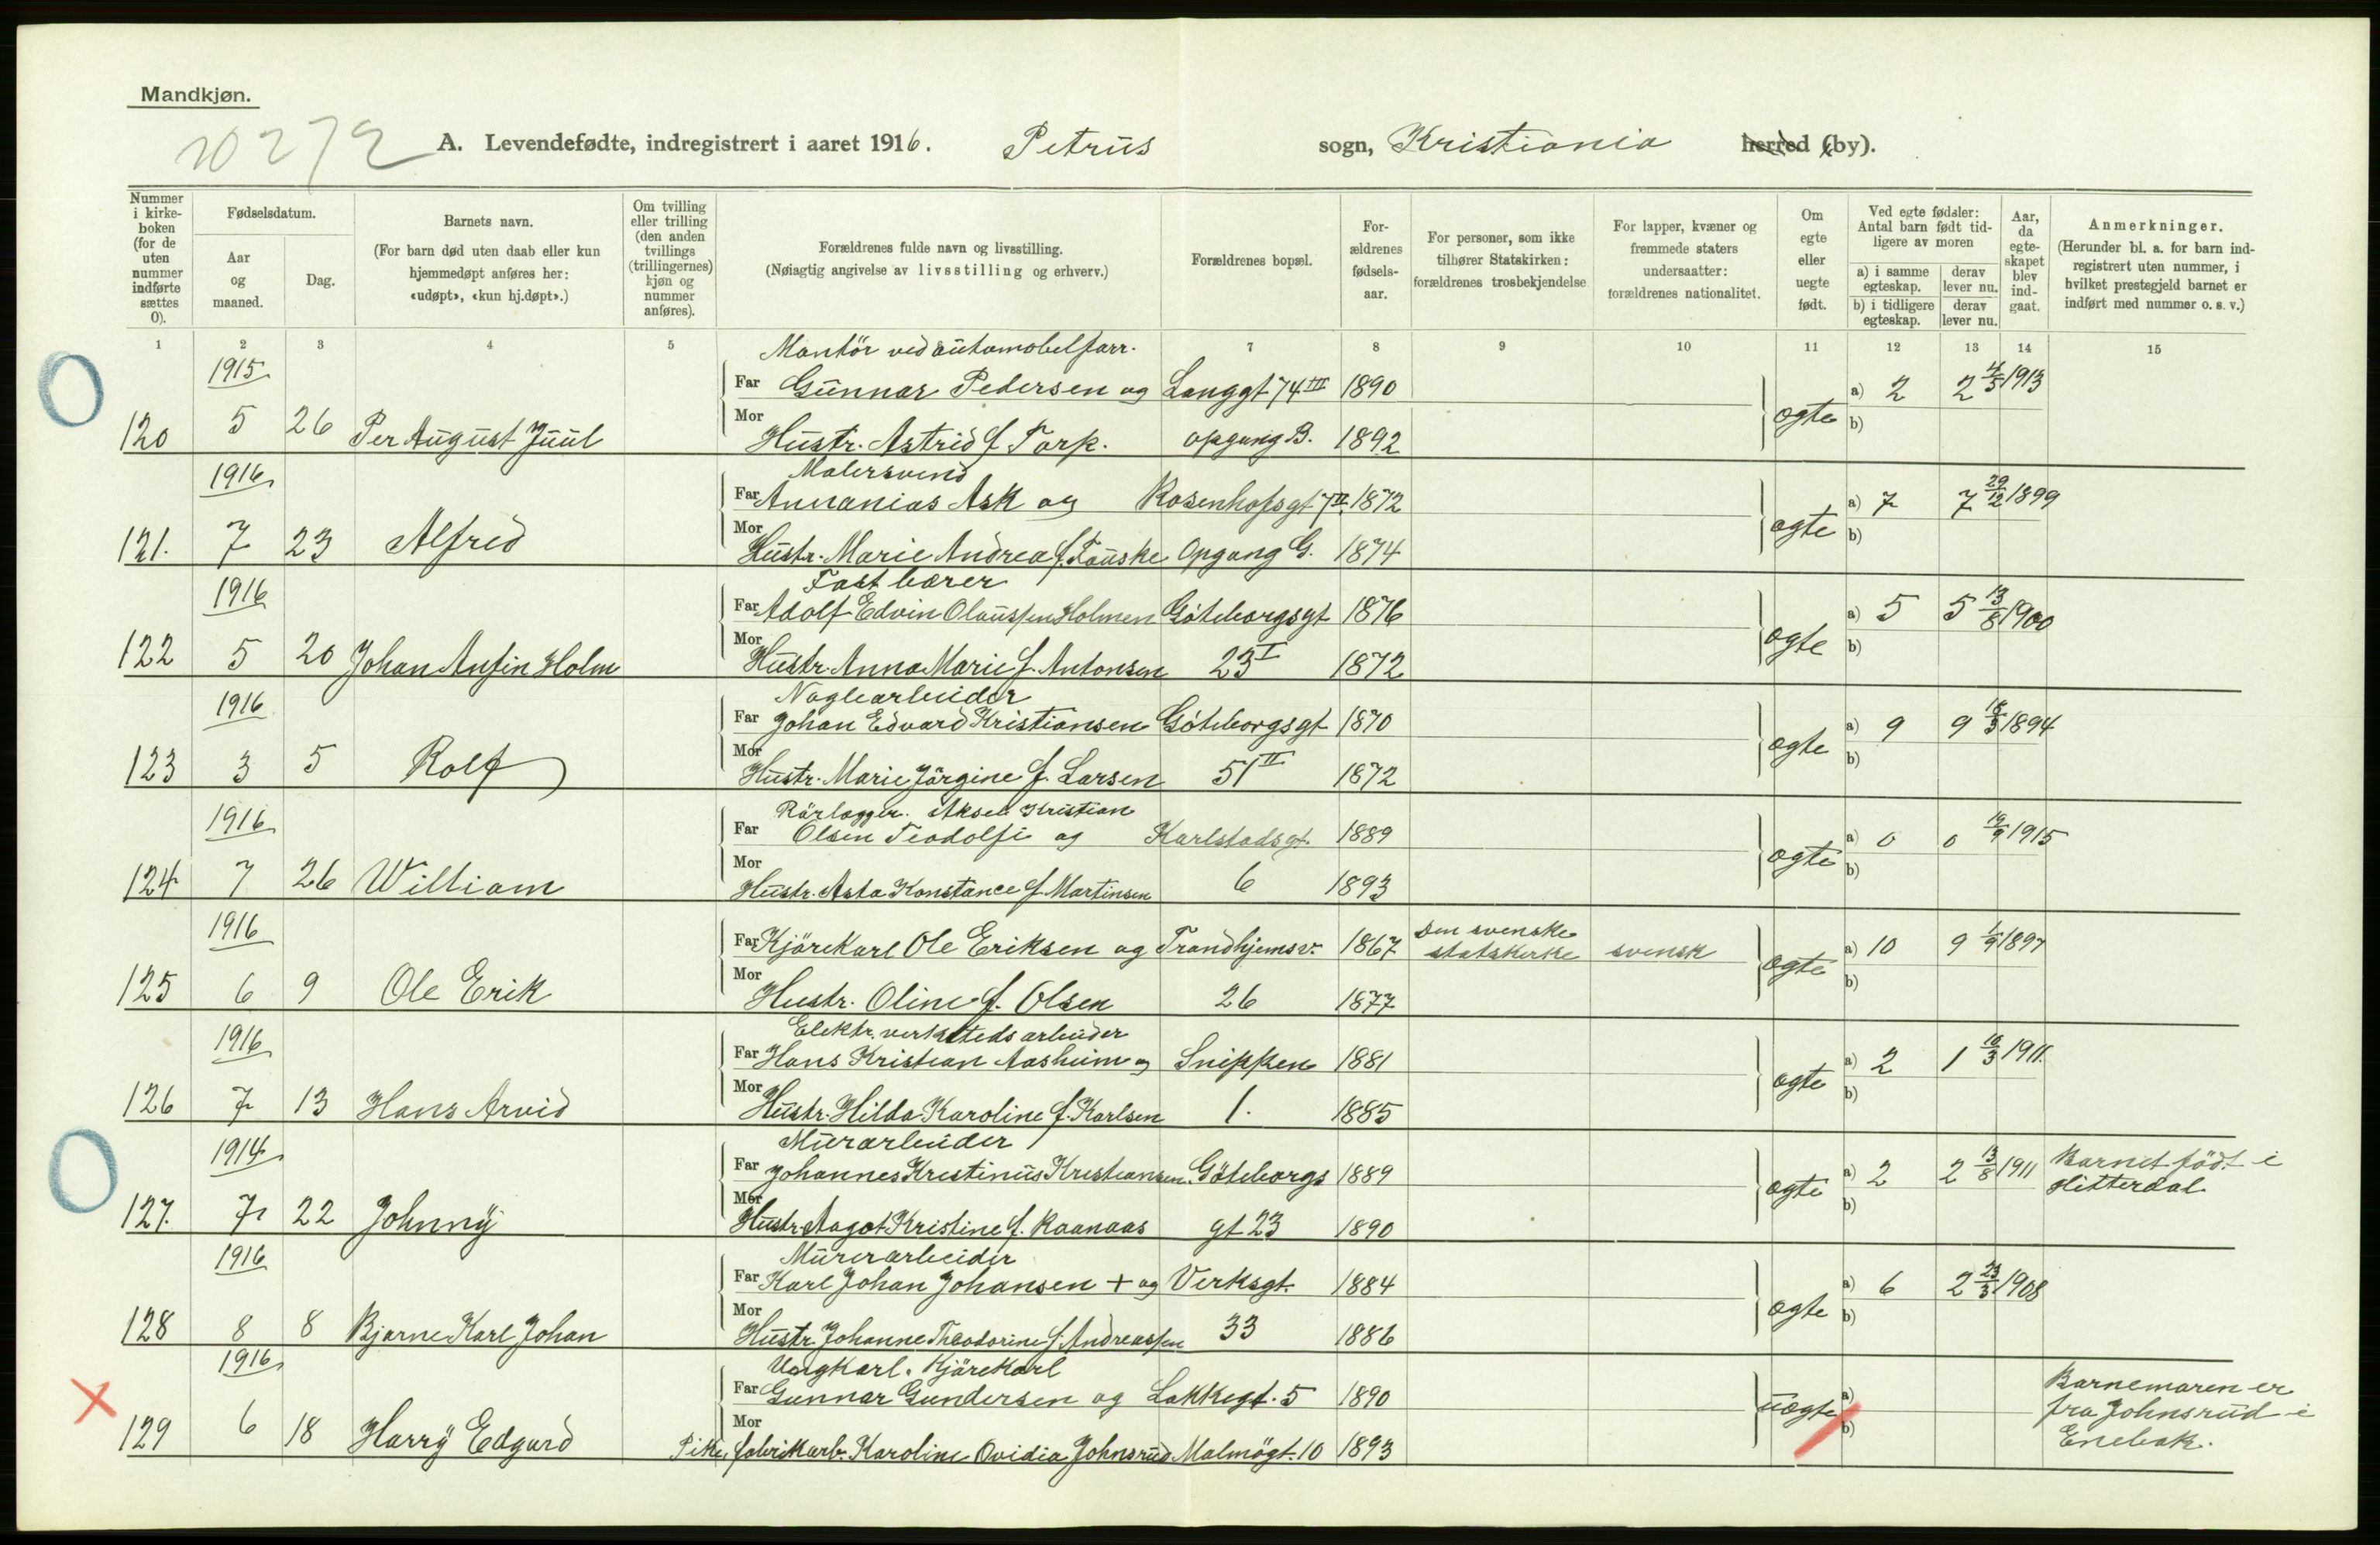 Mandkjøn.
20272
A. Levendefødte, indregistrert i aaret 1916. Petrus sogn, Kristiania herred (by).
Nummer i kirke-boken (for de uten nummer indførte sættes 0).
Fødselsdatum.
Aar og maaned.
Dag.
Barnets navn.
(For barn død uten daab eller kun hjemmedøpt anføres her: «udøpt», «kun hj.døpt».)
Om tvilling eller trilling (den anden tvillings (trillingernes) kjøn og nummer anføres).
Forældrenes fulde navn og livsstilling.
(Nøiagtig angivelse av livsstilling og erhverv.)
Forældrenes bopæl.
For-ældrenes fødsels-aar.
For personer, som ikke tilhører Statskirken: forældrenes trosbekjendelse
For lapper, kvæner og fremmede staters undersaatter: forældrenes nationalitet.
Om egte eller uegte født.
Ved egte fødsler: Antal barn født tid-ligere av moren
a) i samme egteskap.
derav lever nu.
b) i tidligere egteskap.
derav lever nu.
Aar, da egte-skapet blev ind-gaat.
Anmerkninger.
(Herunder bl. a. for barn ind-registrert uten nummer, i hvilket prestegjeld barnet er indført med nummer o. s. v.)
1 2 3 4 5 7 8 9 10 11 12 13 14 15
Montör ved automobelforr.
1915 Far Gunnar Pedersen og Langgt 74 III 1890 a) 2 2 4/5 1913
120 5 26 Per August Juul Mor Hustr. Astrid f. Torp. opgang B. 1892 egte b)
Malersvend
1916 Far Annanias Ask og Rosenhofsgt 7 II. 1872 a) 7 7 29/12 1899
121. 7 23 Alfred Mor Hustr. Marie Andrea f. Fauske Opgang G. 1874 egte b)
Fast bærer
1916 Far Adolf Edvin Olaussen Holmen Göteborgsgt 1876 a) 5 5 13/8 1900
122 5 20 Johan Anfin Holm Mor Hustr. Anna Marie f. Antonsen 23 I 1872 egte b)
Naglearbeider
1916 Far Johan Edvard Kristiansen Göteborgsgt 1870 a) 9 9 18/3 1894
123 3 5 Rolf Mor Hustr. Marie Jörgine f. Larsen 51 II 1872 egte b)
Rörlægger. Aksel Kristian
1916 Far Olsen Teodolfi og Karlstadsgt. 1889 a) 0 0 19/9 1915
124 7 26 William Mor Hustr. Asta Konstance f. Martinsen 6 1893 egte b)
1916 Far Kjörekarl Ole Eriksen og Trondhjemsv. 1867 Den svenske statskirke svensk a) 10 9 1/9 1897
125 6 9 Ole Erik Mor Hustr. Oline f. Olsen 26 1877 egte b)
Elektr. verkstedsarbeider
1916 Far Hans Kristian Aasheim og Snippen 1881 a) 2 1 18/3 1911.
126 7 13 Hans Arvid Mor Hustr. Hilda Karoline f. Karlsen 1. 1885 egte b)
Murarbeider
1914 Far Johannes Kristinus Kristiansen. Göteborgs 1889 a) 2 2 13/8 1911 Barnet födt i Hitterdal
127. 7 22 Johnny Mor Hustr. Aagot Kristine f. Raanaas gt 23 1890 egte b)
Murerarbeider
1916 Far Karl Johan Johansen + og Verksgt. 1884 a) 6 2 23/3 1908
128 8 8 Bjarne Karl Johan Mor Hustr Johanne Theodorine f. Andreassen 33 1886 egte b)
Ungkarl. Kjörekarl
1916 Far Gunnar Gundersen og Lakkegt. 5 1890 a) Barnemoren er fra Johnsrud i Enebak.
129 6 18 Harry Edgard Mor Pike, fabrikarb. Karoline Ovidia Johnsrud Malmögt. 10 1893 uegte b)